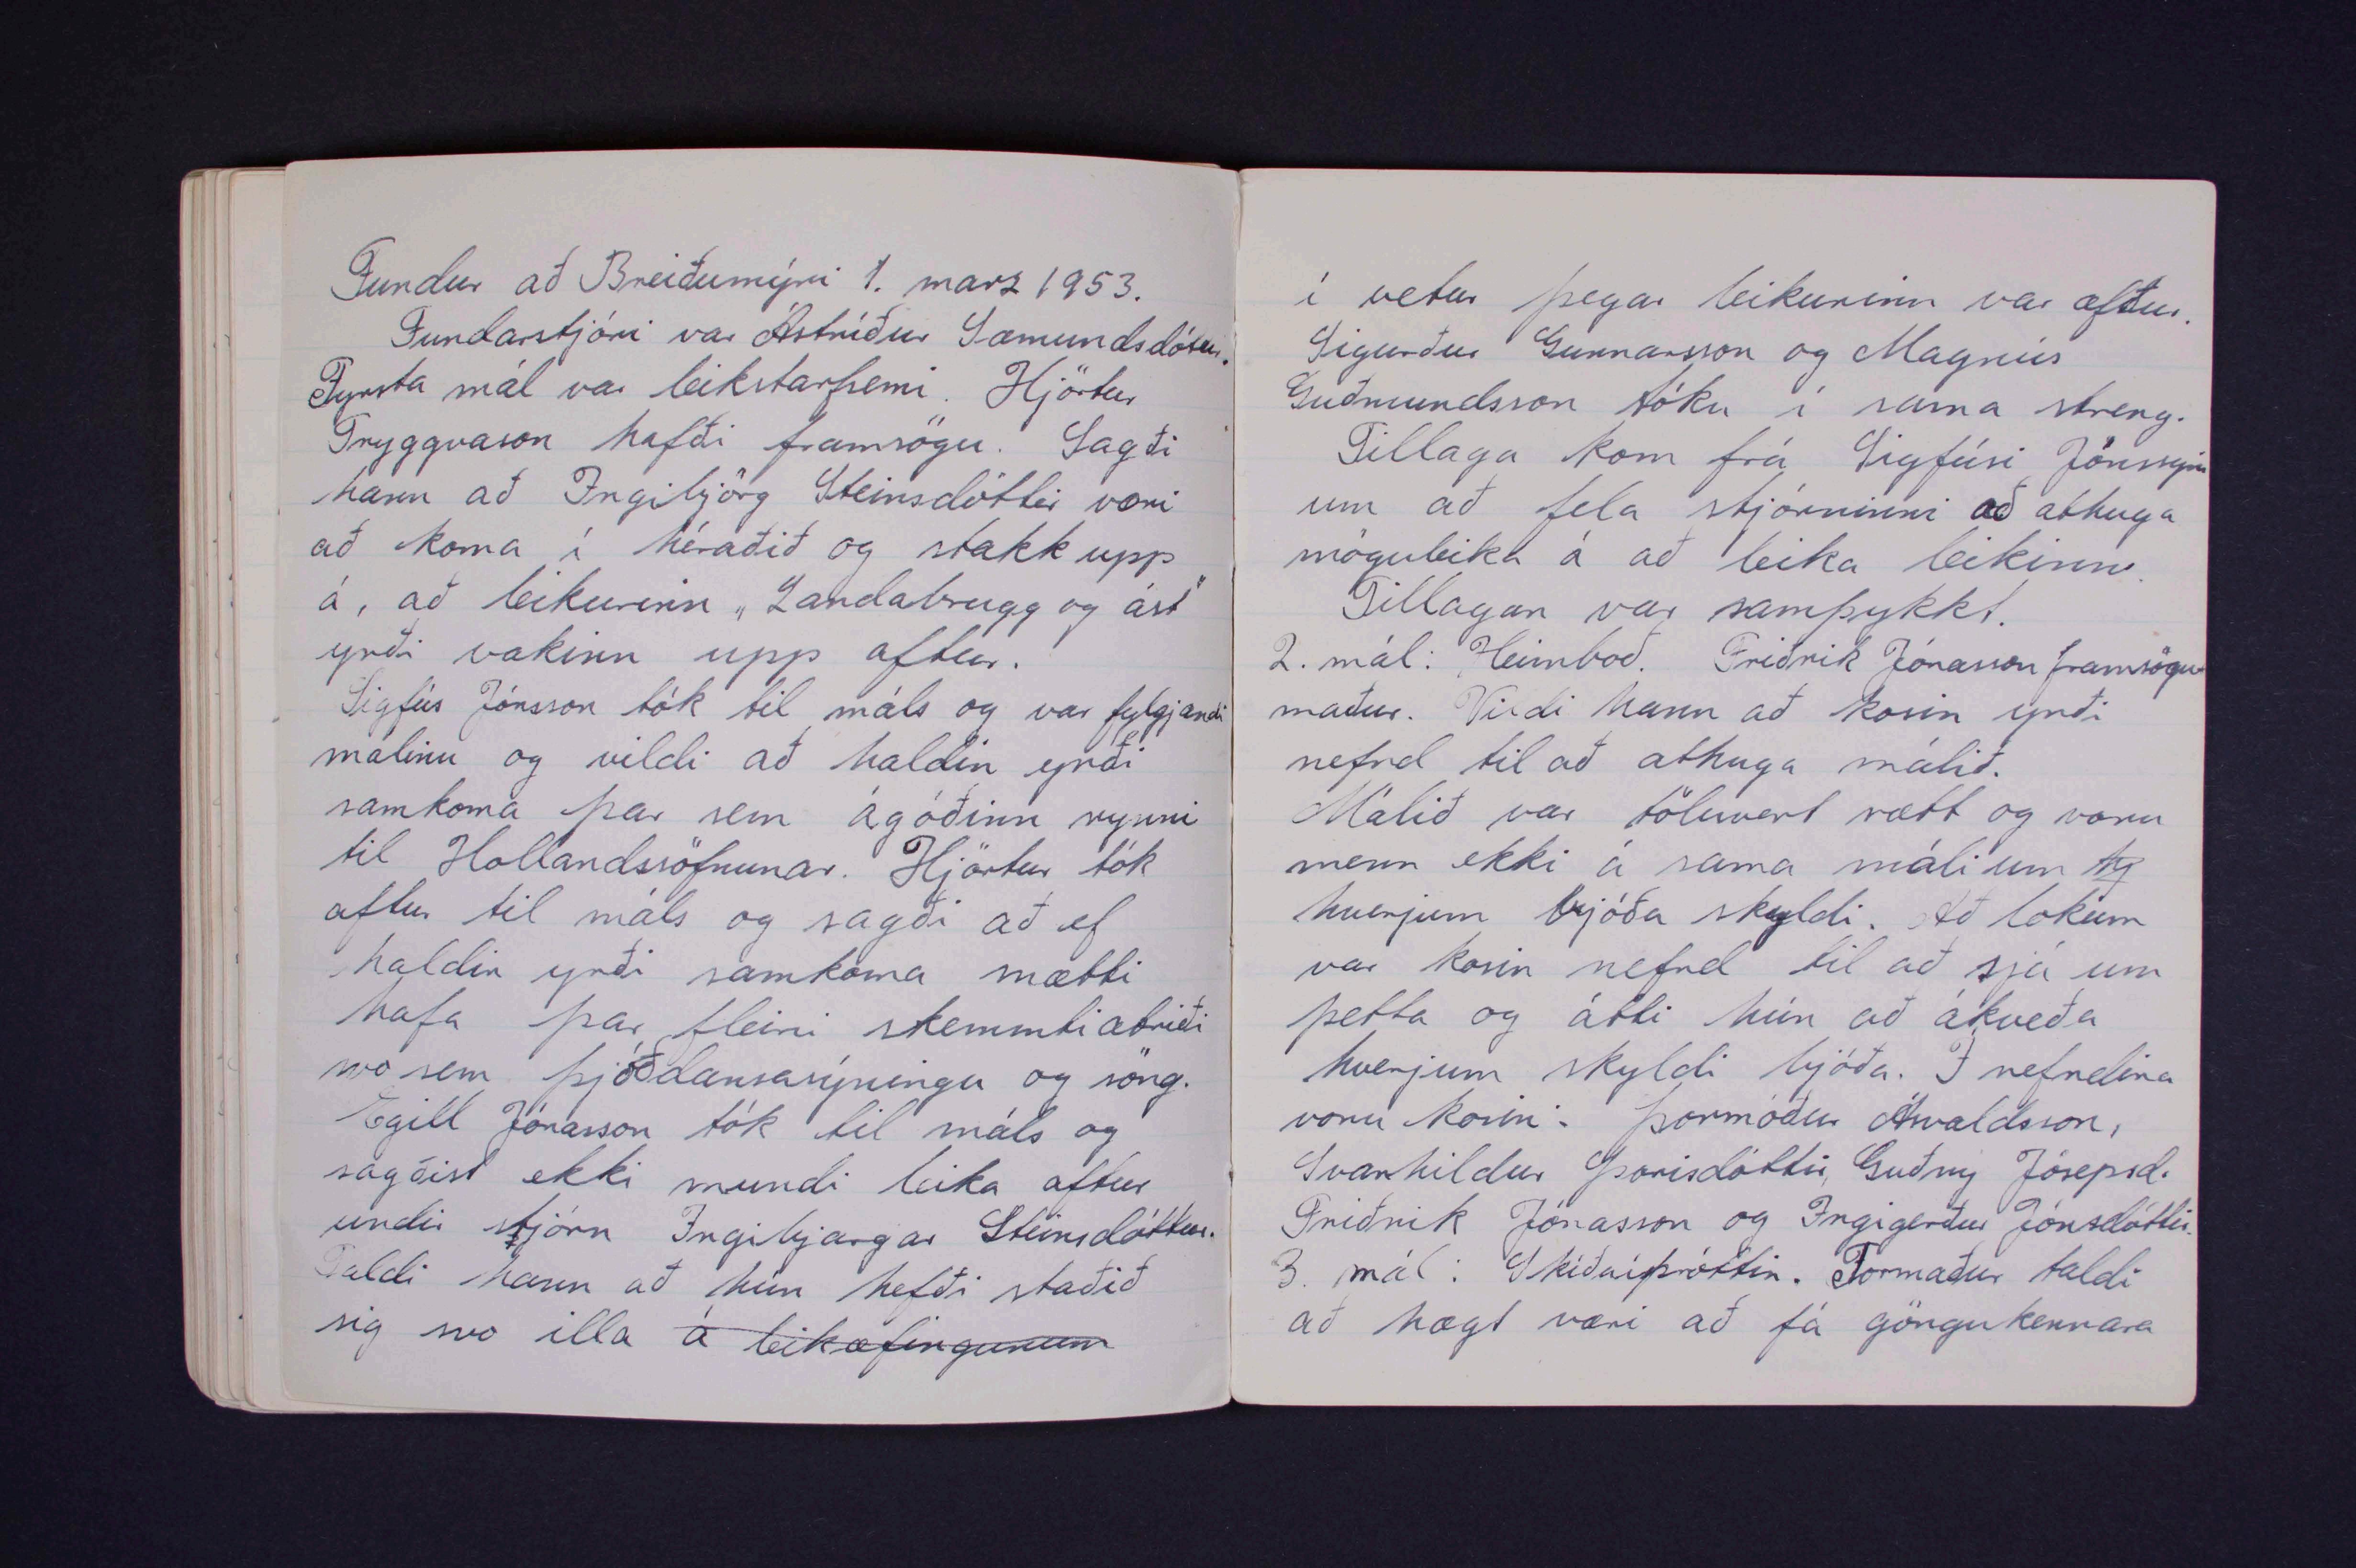 Fundur að Breiðumýri 1. marz 1953.
Fundarstjóri var Ástríður Sæmundsdóttir.
Fyrsta mál var leikstarfsemi. Hjörtur
Tryggvason hafði framsögu. Sagði
hann að Ingibjörg Steinsdóttir væri
að koma í héraðið og stakk upp
á, að leikurinn „Landabrugg og ást"
yrði vakinn upp aftur.
Sigfús Jónsson tók til máls og var fylgjandi
málinu og vildi að haldin yrði
samkoma þar sem ágóðinn rynni
til Hollandssöfnunar. Hjörtur tók
aftur til máls og sagði að ef
haldin yrði samkoma mætti
hafa þar fleiri skemmtiatriði
svo sem þjóðdansasýningu og söng.
Egill Jónasson tók til máls og
sagðist ekki mundi leika aftur
undir stjórn Ingibjargar Steinsdóttur.
Taldi hann að hún hefði staðið
sig svo illa á leikæfingunum
í vetur þegar leikurinn var æfður.
Sigurður Gunnarsson og Magnús
Guðmundsson tóku í sama streng.
Tillaga kom frá Sigfúsi Jónssyni
um að fela stjórninni að athuga
möguleika á að leika leikinn.
Tillagan var samþykkt.
2. mál: Heimboð. Friðrik Jónasson framsögu
maður. Vildi hann að kosin yrði
nefnd til að athuga málið.
Málið var töluvert rætt og voru
menn ekki á sama máli um
hverjum bjóða skyldi. Að lokum
var kosin nefnd til að sjá um
þetta og átti hún að ákveða
hverjum skyldi bjóða. Í nefndina
voru kosin: Þormóður Ásvaldsson,
Svanhildur Þorisdóttir, Guðný Jósepsd.
Friðrik Jónasson og Ingigerður Jónsdóttir.
3. mál: Skíðaíþróttin. Formaður taldi
að hægt væri að fá göngukennara